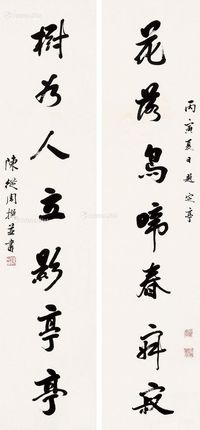 丙寅夏日題定亭
花落鳥啼春寂寂
樹如人立影亭亭
陳從周撰並書